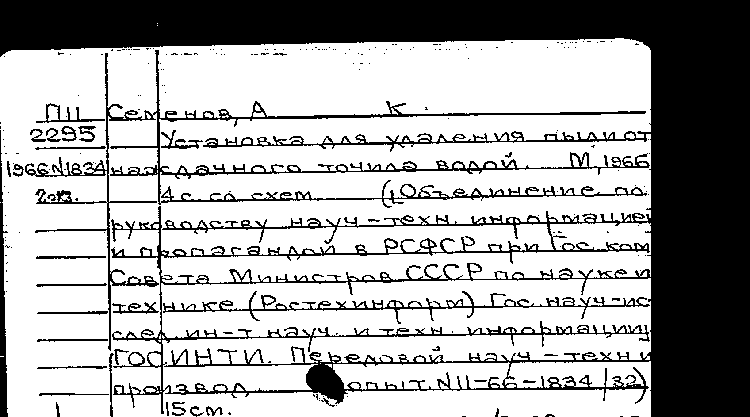 П11 Семенов, А К.
2295 Установка для удаления пыли от
1966N1834 наждачного точила водой. М, 1966
2 экз. 4 с. со схем (Объединение по
руководству науч-техн. информацией
и пропагандой в РСФСР при Гос. ком
Совета Министров СССР по науке и
технике (Ростехинформ) Гос. науч-ис
след ин-т науч. и техн. информации
ГОСИНТИ. Передовой науч-техн и
производ опыт. N11-66-1834/32)
15 см.